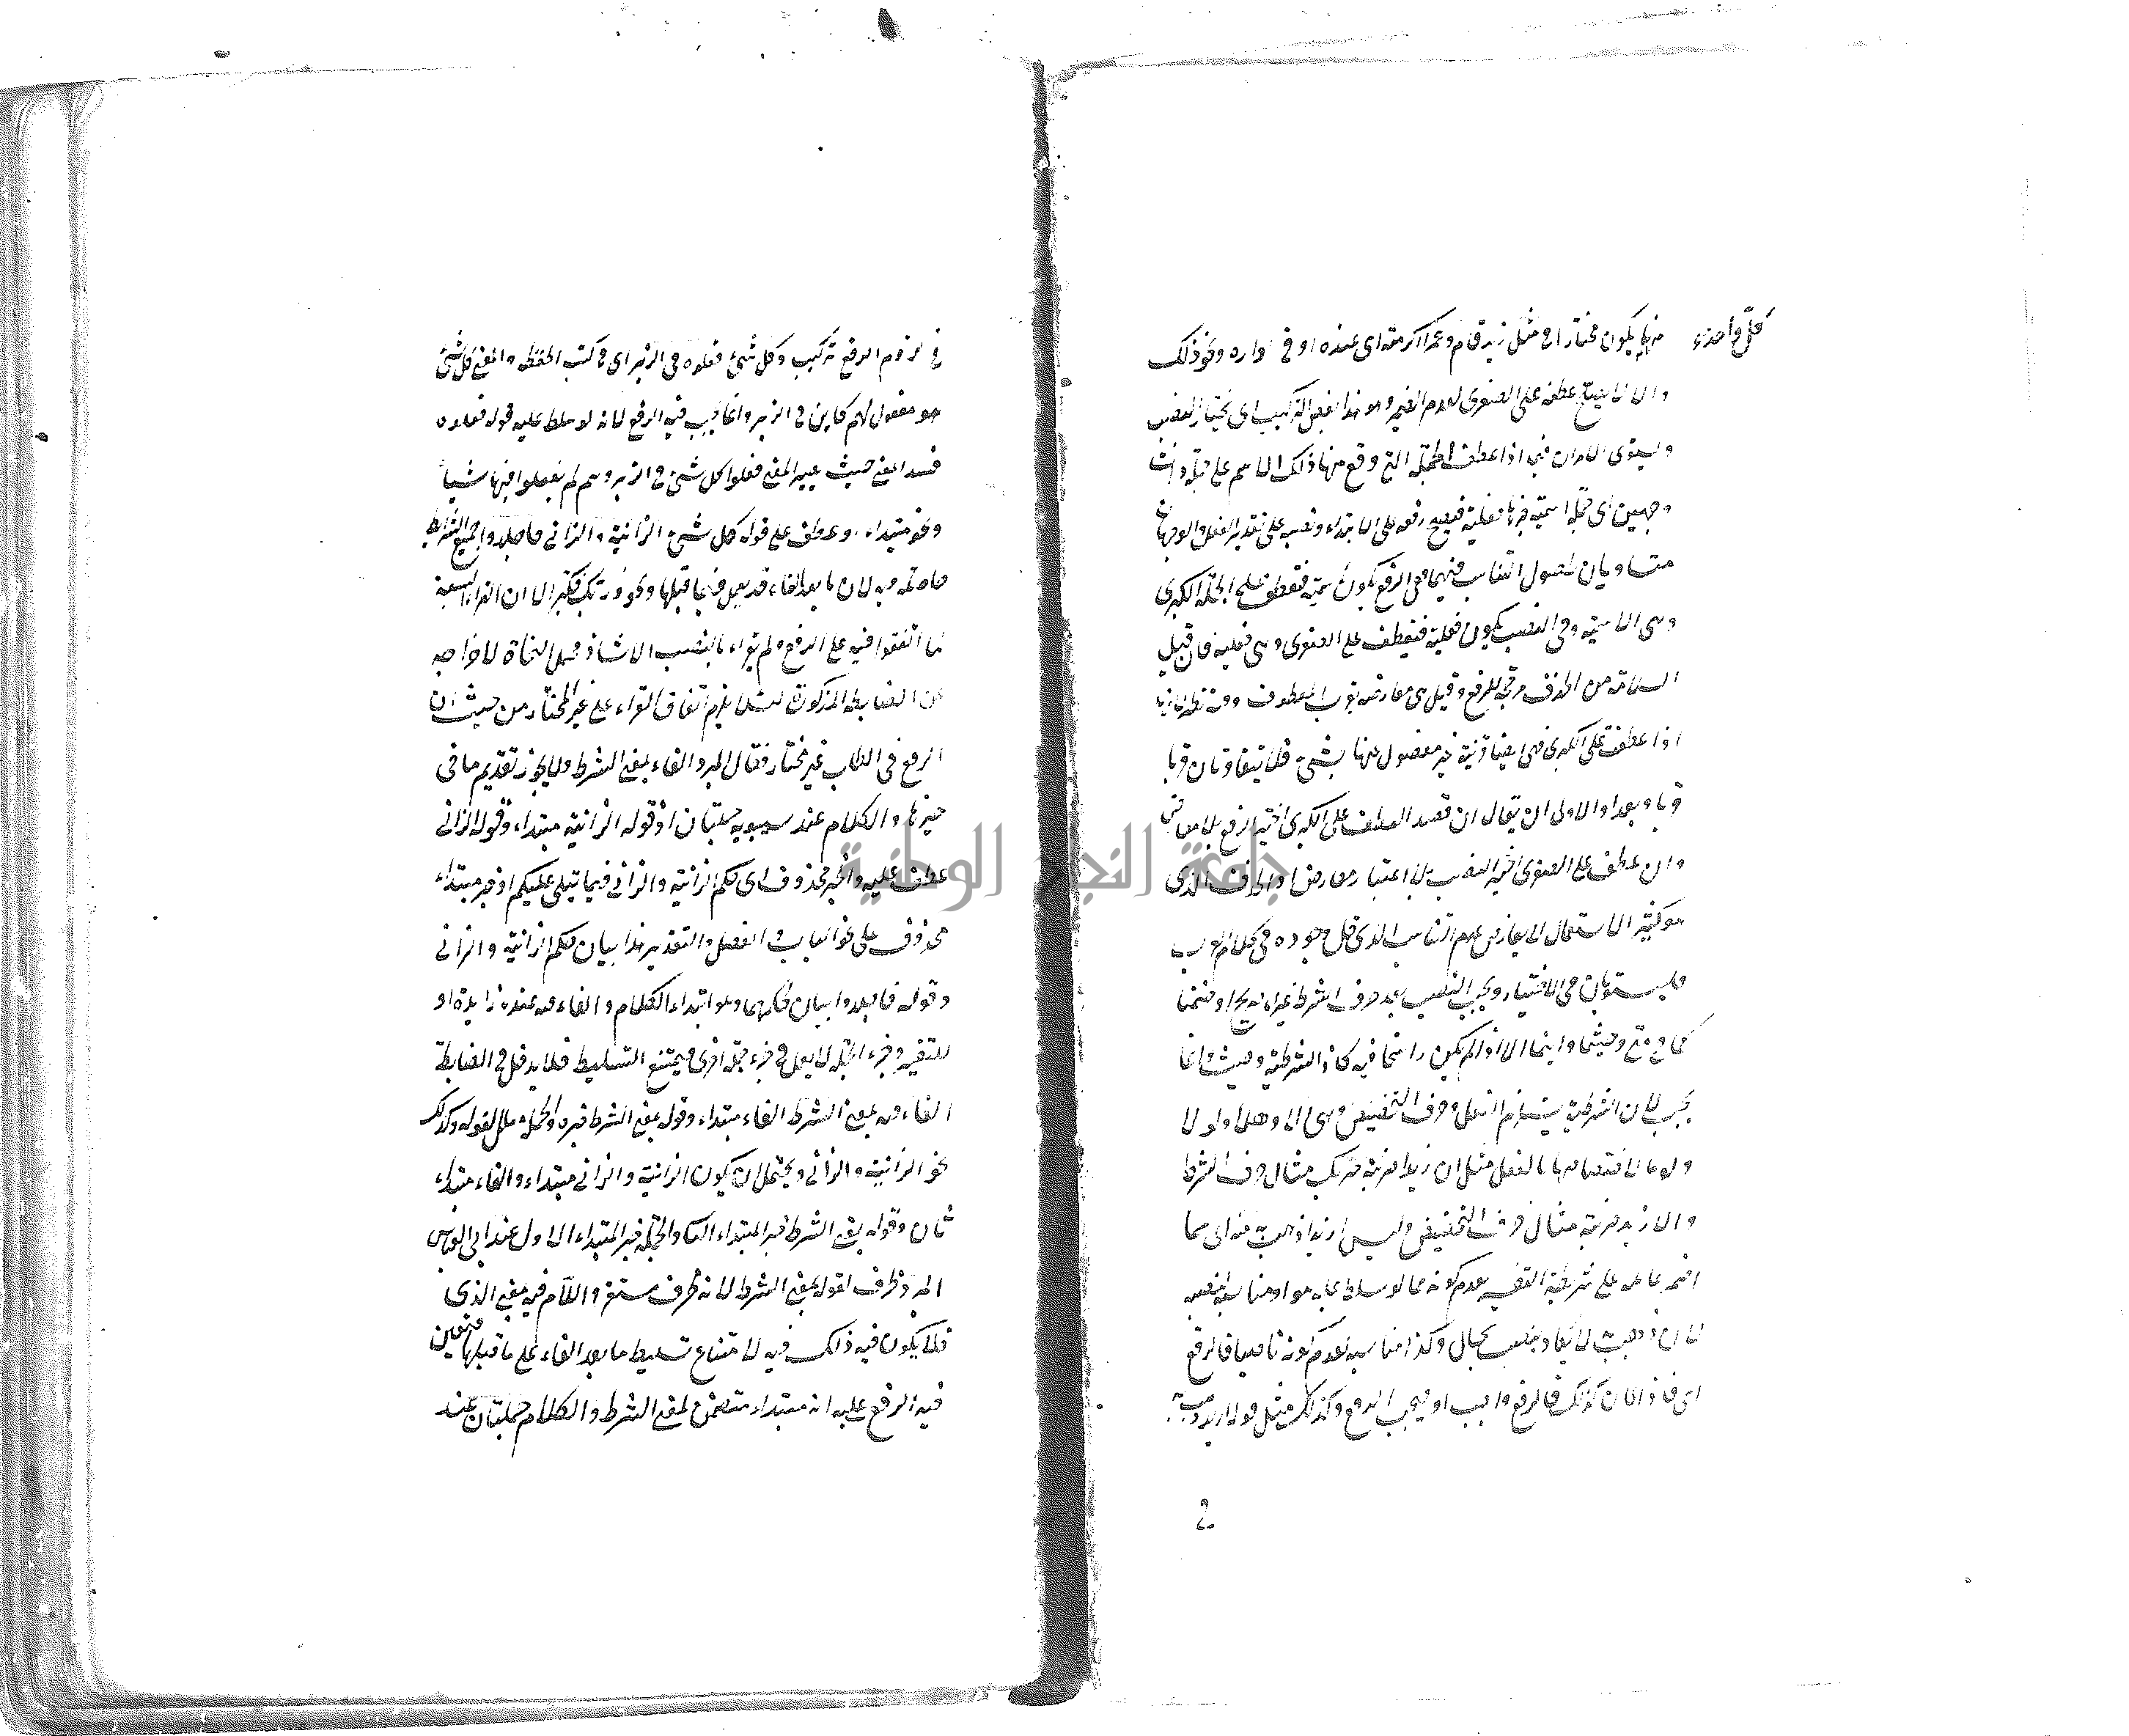 كل واحد
منها يكون مختارا في مثل زيد قام وعمرا اكرمته اى عنده او في داره ونحو ذلك
والا لا يصح عطفه على الصغرى لعدم الضمير
ويستوى الامران في اذا عطف الجملة التي وقع منها ذلك الاسم على جملة ذات
وجهين اى جملة اسمية خبرها فعلية فيصح رفعه على الابتداء ونصبه على تقدير الفعل والوجهان
متساويان لحصول التناسب فيهما ففي الرفع يكون اسمية فتعطف على الجملة الكبرى
وهى الاسمية وفي النصب يكون فعلية فتعطف على الصغرى وهى فعلية فان قيل
السلامة من الحذف مرجحة للرفع وقيل هى معارضة بقرب المعطوف
اذا عطفت على الكبرى فهى ايضا قريبة غير مفصول عنها بشئ فلا يتفاوتان قربا
قربا وبعدا والاولى ان يقال ان قصد العطف على الكبرى اختير الرفع بلا
وان عطف على الصغرى اختير النصب بلا اعتبار معارض والحذف الذى
هو كثير الاستعمال لا يعارض عدم التناسب الذى قل وجوده في كلام العرب
فليستويان في الاختيار ويجب النصب بعد حرف الشرط
متى وحيثما واينما الا اذا لم يكن راسخا فيه كاذا الشرطية وحيث وانما
يجب لان الشرطية يستلزم الفعل وحرف التحضيض وهى الا وهلا ولولا
ولوما لاختصاصها بالفعل مثل ان زيدا ضربته ضربك مثال حرف الشرط
والا زيدا ضربته مثال حرف التحضيض وليس ازيد ذهب به منه اى مما
اضمر عامله على شريطة التفسير بعدم كونه مما لو سلط عليه هو او مناسبه لنصبه
لان ذهب لا يكاد ينصب بحال وكذا مناسبه لعدم كونه ناصبا فالرفع
اى فاذا كان كذلك فالرفع واجب او فيجب الرفع وكذلك مثل
في لزوم الرفع تركيب وكل شئ فعلوه في الزبر اى في كتب الحفظة والمعنى كل شئ
هو مفعول لهم كاين في الزبر وانما يجب فيه الرفع لانه لو سلط عليه قوله فعلوه
فسد المعنى حيث يصير المعنى فعلوا كل شئ في الزبر وهم لم يفعلوا فيها شيأ
ونحو مبتداء او عطف على قوله كل شئ الزانية والزانى فاجلدوا لجميع الشرايط
حاصلة فيه لان ما بعد الفاء قد يعمل فيما قبلها ونحو وربك فكبر الا ان القراء السبعة
لما اتفقوا فيه على الرفع ولم يقراء بالنصب الا شاذ تمحل النحاة لاخراجه
عن الضابطة المذكورة لئلا يلزم اتفاق القراء على غير المختار من حيث ان
الرفع في الطلب غير مختار فقال المبرد الفاء بمعنى الشرط ولا يجوز تقديم ما في
حيزها والكلام عند سيبويه جملتان اذ قوله الزانية مبتداء وقوله الزانى
عطف عليه والخبر محذوف اى حكم الزانية والزانى فيما يتلى عليكم او خبر مبتداء
محذوف على نحو الباب والفصل والتقدير هذا بيان حكم الزانية والزانى
وقوله فاجلدوا بيان حكمهما وهو ابتداء الكلام والفاء فيه عنده زايدة او
للتفسير وجزء الجملة لا يعمل في جزء جملة اخرى فيمتنع التسليط فلا يدخل في الضابطة
الفاء فيه بمعنى الشرط الفاء مبتداء وقوله بمعنى الشرط خبره والجملة علة لقوله وكذلك
نحو الزانية والزانى ويحتمل ان يكون الزانية والزانى مبتداء والفاء مبتداء
ثان وقوله بمعنى الشرط خبر المبتداء الثانى والجملة خبر المبتداء الاول عند ابى العباس
المبرد ظرف لقوله بمعنى الشرط لانه ظرف مستقر واللام فيه بمعنى الذى
فلا يكون فيه ذلك فيه لامتناع تسليط ما بعد الفاء على ما قبلها فتعين
فيه الرفع على انه مبتداء متضمن لمعنى الشرط والكلام جملتان عند
جامعة النجاح الوطنية